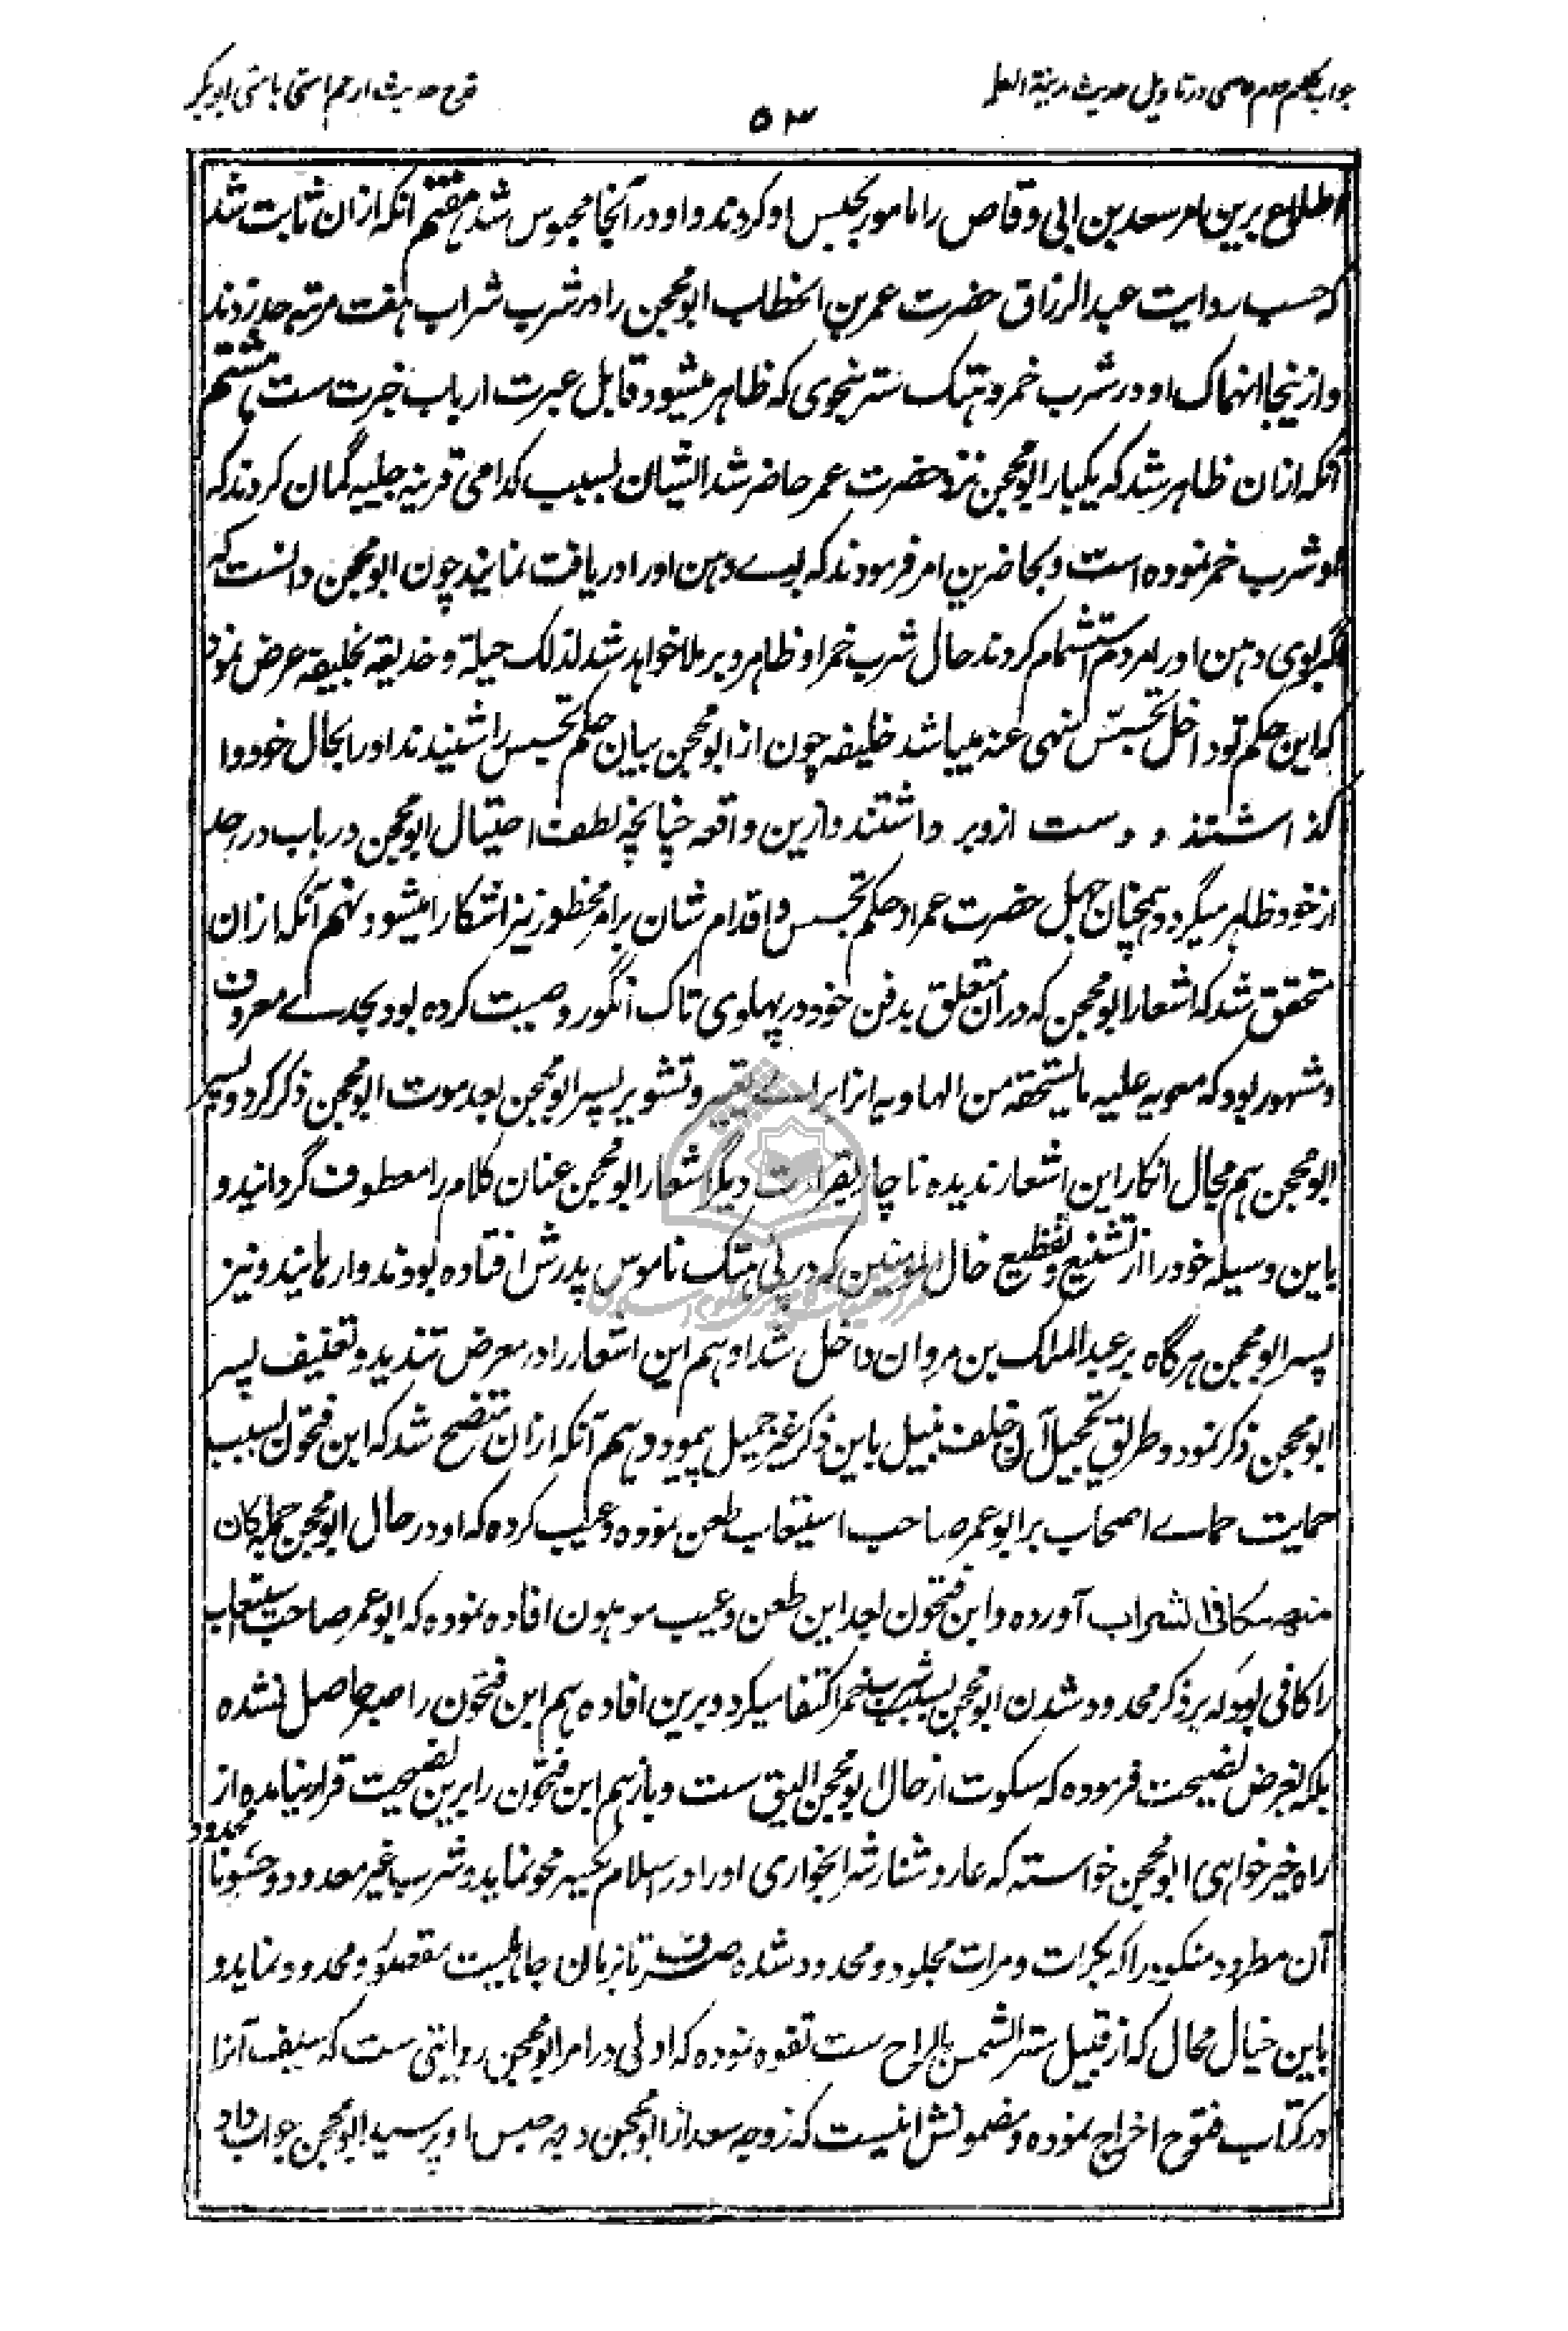 جواب کلام عاصمی در تاویل حدیث مدینة العلم
قدح حدیث ارحم امتی بامتی ابوبکر
۵۳
اطلاع برین امر سعد بن ابی وقاص را مامور بحبس او کردند و او در آنجا محبوس شد هفتم آنکه ازان ثابت شد
که حسب روایت عبدالرزاق حضرت عمر بن الخطاب ابومحجن را در شرب شراب هفت مرتبه حد زدند
و ازینجا انهماک او در شرب خمر و هتک ستر بنحوی که ظاهر میشود قابل عبرت ارباب خبرت ست هشتم
آنکه ازان ظاهر شد که یکبار ابومحجن نزد حضرت عمر حاضر شد ایشان بسبب کدامی قرینه جلیه گمان کردند که
او شرب خمر نموده است و بحاضرین امر فرمودند که بوے دهن او را دریافت نمایند چون ابومحجن دانست که
اگر بوی دهن او را مردم استشمام کردند حال شرب خمر او ظاهر و برملا خواهد شد لذلک حیلة و خدیعة بخلیفه عرض نمود
که این حکم تو داخل تجسس منهی عنه میباشد خلیفه چون از ابومحجن بیان حکم تجسس را شنیدند او را بحال خود وا
گذاشتند و دست ازو بر داشتند و ازین واقعه چنانچه لطف احتیال ابومحجن در باب درء حد
از خود ظاهر میگردد همچنان جهل حضرت عمر از حکم تجسس و اقدام شان بر امر محظور نیز آشکارا میشود نهم آنکه ازان
متحقق شد که اشعار ابومحجن که دران متعلق بدفن خود در پهلوی تاک انگور وصیت کرده بود بحدے معروف
و مشهور بود که معویه علیه ما یستحقه من الهاویه انرا براے تعییر و تشویر پسر ابومحجن بعد موت ابومحجن ذکر کرد و پسر
ابومحجن هم مجال انکار این اشعار ندیده ناچار بقراءت دیگر اشعار ابومحجن عنان کلام را معطوف گردانید و
باین وسیله خود را از تشنیع و تفظیع خال المؤمنین که در پی هتک ناموس پدرش افتاده بودند وارهانید و نیز
پسر ابومحجن هرگاه بر عبدالملک بن مروان داخل شد او هم این اشعار را در معرض تندید و تعنیف پسر
ابومحجن ذکر نمود و طریق تخجیل آن خلف نبیل باین ذکر غیر جمیل پیمود دهم آنکه ازان متضح شد که این فتحون بسبب
حمایت حماے اصحاب بر ابو عمر صاحب استیعاب طعن نموده و عیب کرده که او در حال ابومحجن جمله کان
منهمکا فی الشراب آورده و ابن فتحون بعد این طعن و عیب موهون افاده نموده که ابو عمر صاحب استیعاب
را کافی بود که بر ذکر محدود شدن ابومحجن بسبب شرب خمر اکتفا میکرد و برین افاده هم ابن فتحون را صبر حاصل نشده
بلکه بغرض نصیحت فرموده که سکوت از حال ابومحجن الیق ست و باز هم ابن فتحون را برین نصیحت قرار نیامده از
راه خیرخواهی ابومحجن خواسته که عار و شنار شرابخواری او را در اسلام بکسر محو نماید و شرب غیر معدود و محدود
آن مطرود منکود را که بکرات و مرات مجلود و محدود شده صرف تا زمان جاهلیت مقصور و محدود نماید و
باین خیال محال که از قبیل ستر الشمس بالراح ست تفوه نموده که اولی در امر ابومحجن روایتی ست که سیف آنرا
در کتاب فتوح اخراج نموده و مضمونش اینست که زوجه سعد از ابومحجن وجه حبس او پرسید ابومحجن جواب داد